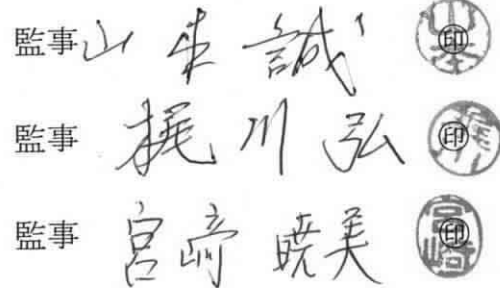 監事 山本 誠 ㊞
監事 梶川 弘 ㊞
監事 宮﨑 暁美 ㊞